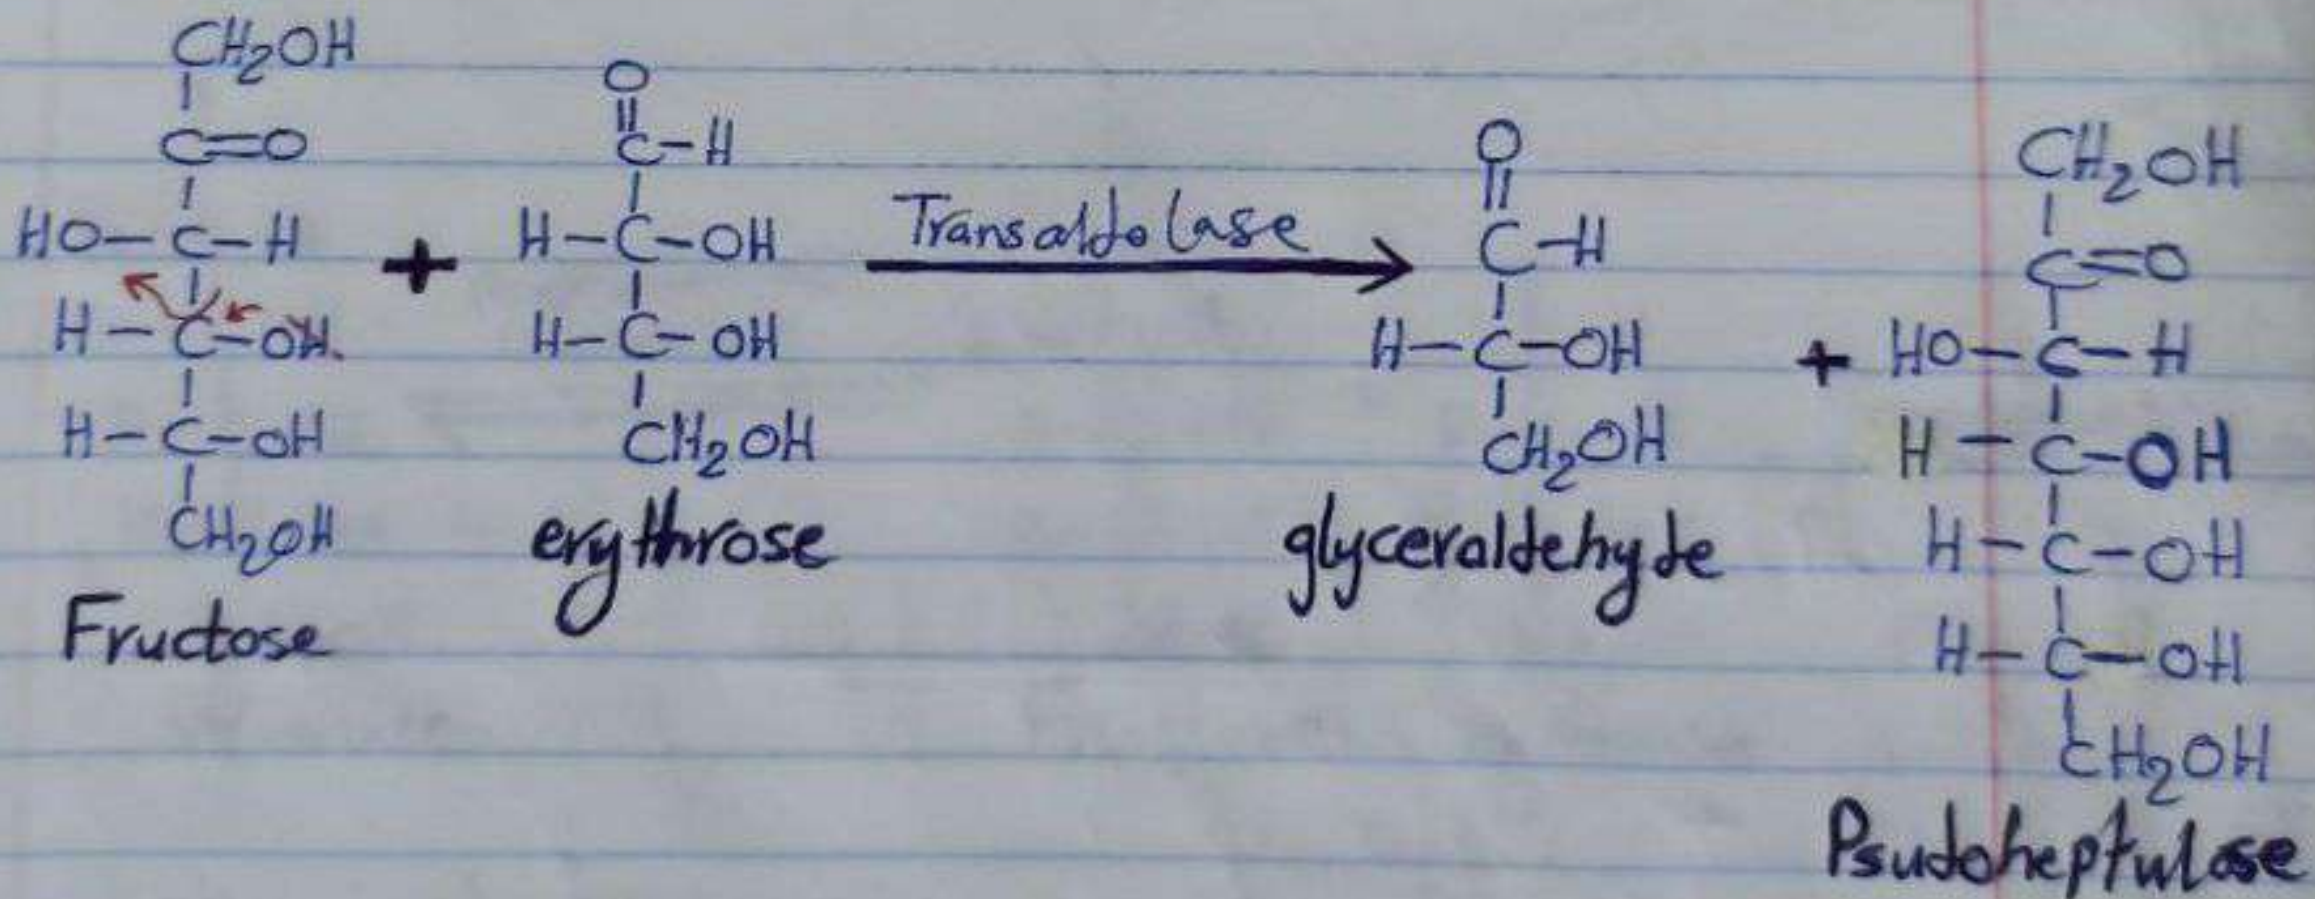 CH2OH
C=O
HO-C-H
H-C-OH
H-C-OH
CH2OH
Fructose
+
O
C-H
H-C-OH
H-C-OH
CH2OH
erythrose
Transaldolase
O
C-H
H-C-OH
CH2OH
glyceraldehyde
+
CH2OH
C=O
HO-C-H
H-C-OH
H-C-OH
H-C-OH
CH2OH
Psudoheptulose